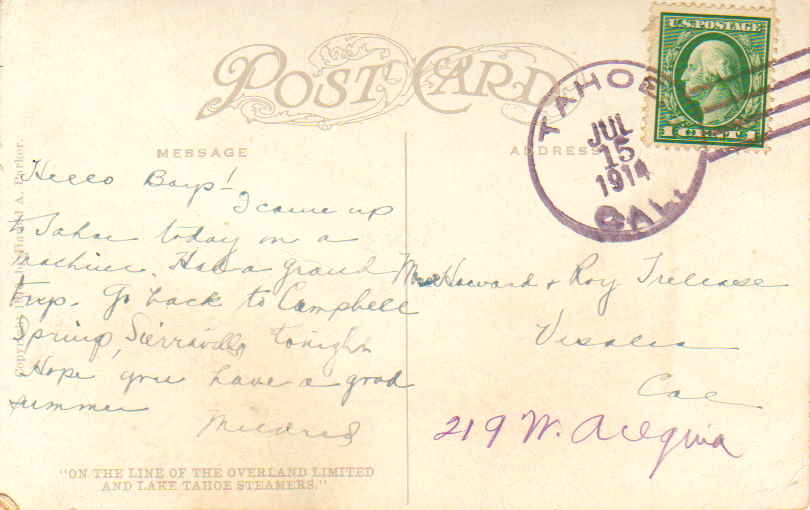 POST CARD
U.S. POSTAGE
1 CENT 1
TAHOE
JUL
15
1914
CAL.
MESSAGE
ADDRESS
Hello Boys!
I came up
to Tahoe today on a
machine. Had a grand
trip. Go back to Campbell
Spring, Sierraville tonight
Hope you have a good
summer
Mildred
Howard & Roy Treloase
Visalia
Cal
219 W. Acequia
Copyright by A. Parker.
"ON THE LINE OF THE OVERLAND LIMITED
AND LAKE TAHOE STEAMERS."